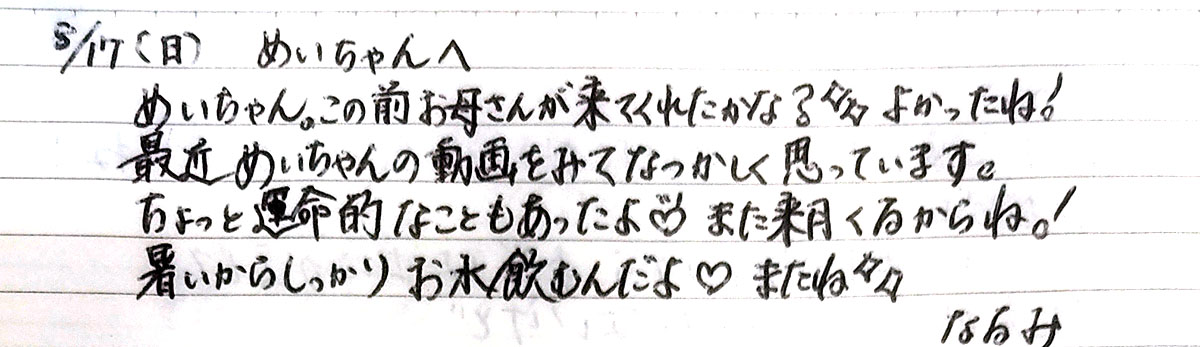 8/17(日) めいちゃんへ
めいちゃん。この前お母さんが来てくれたかな？ よかったね！
最近めいちゃんの動画をみてなつかしく思っています。
ちょっと運命的なこともあったよ♡ また来月くるからね。！
暑いからしっかりお水飲むんだよ♡ またね
なるみ